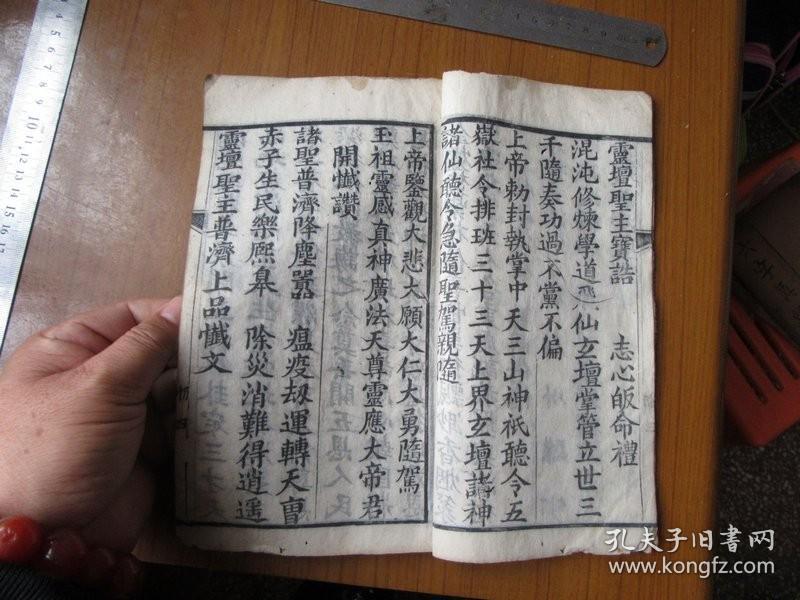 靈壇聖主寶誥　　志心皈命禮
混沌修煉學道　仙玄壇掌管立世三
千隨奏功過不黨不偏
上帝勅封執掌中天三山神祇聽令五
嶽社令排班三十三天上界玄壇諸神
諸仙聽令急隨聖駕親臨
上帝鑒觀大悲大願大仁大勇隨駕
玉祖靈感真神廣法天尊靈應大帝君
開懺讚
諸聖普濟降塵囂　瘟疫刼運轉天曹
赤子生民樂熈皋　除災消難得逍遥
靈壇聖主普濟上品懺文
孔夫子旧书网
www.kongfz.com